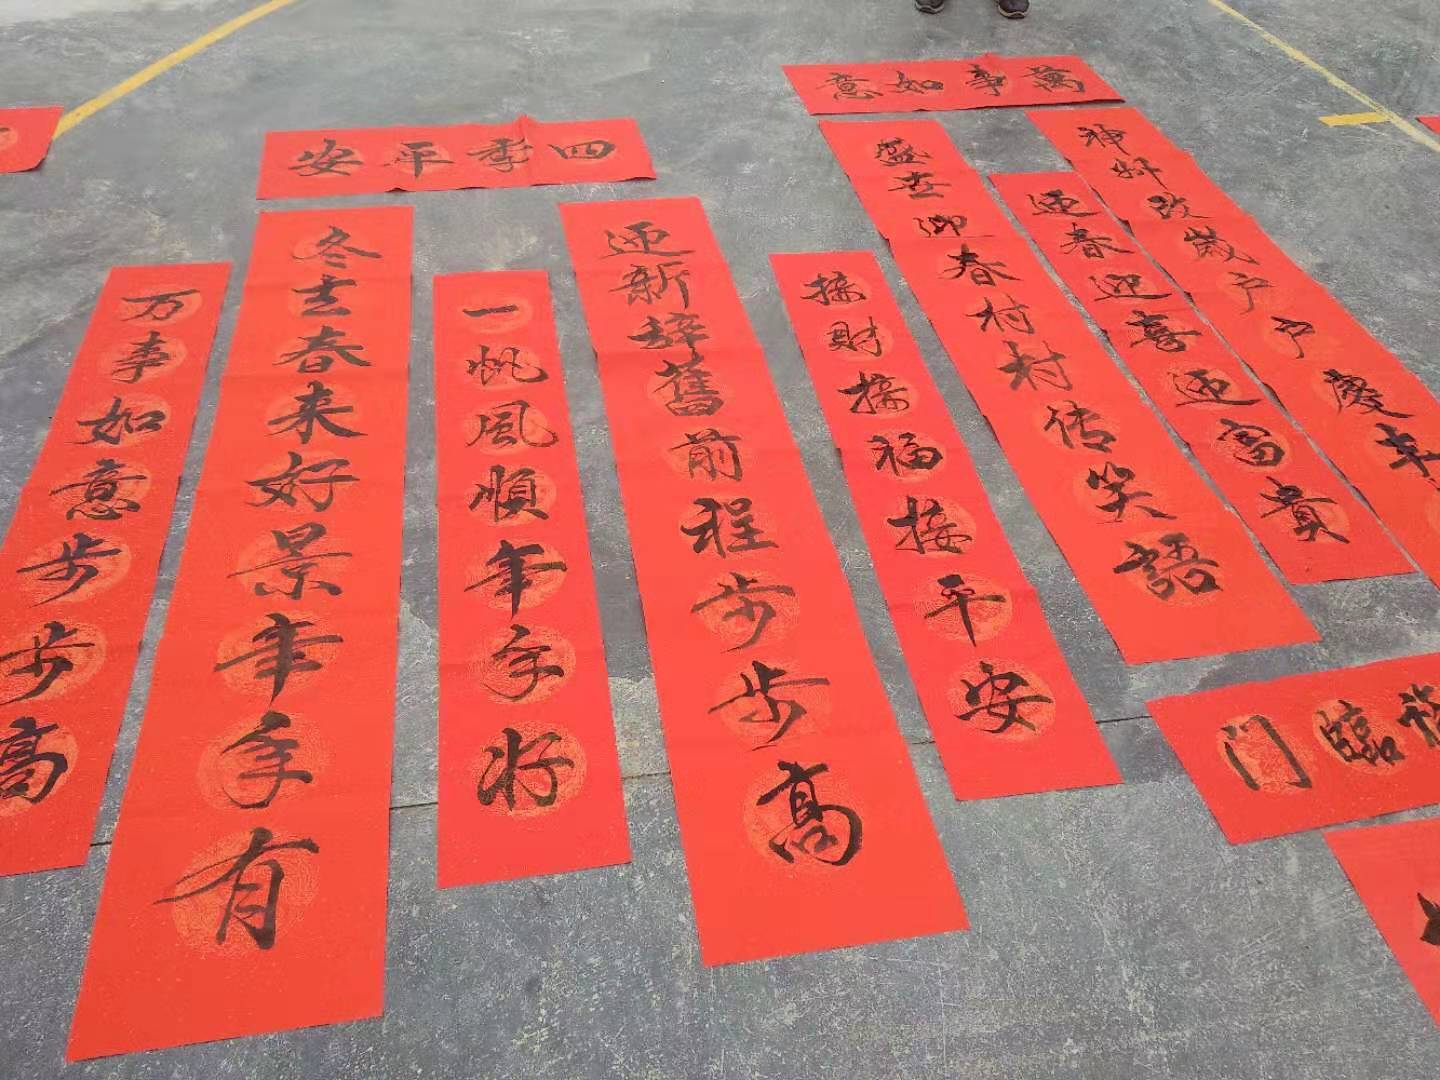 萬事如意
四季平安
神州改歲户户慶丰
迎春迎喜迎富貴
盛世迎春村村传笑語
接財接福接平安
迎新辞舊前程步步高
一帆風順年年好
冬去春来好景年年有
万事如意步步高
福臨门